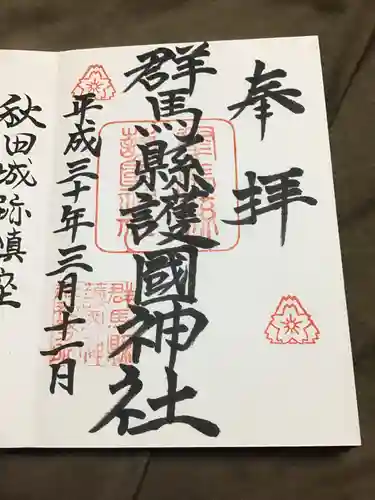 奉拝
群馬縣護國神社
平成三十年三月十一日
秋田城跡鎮座